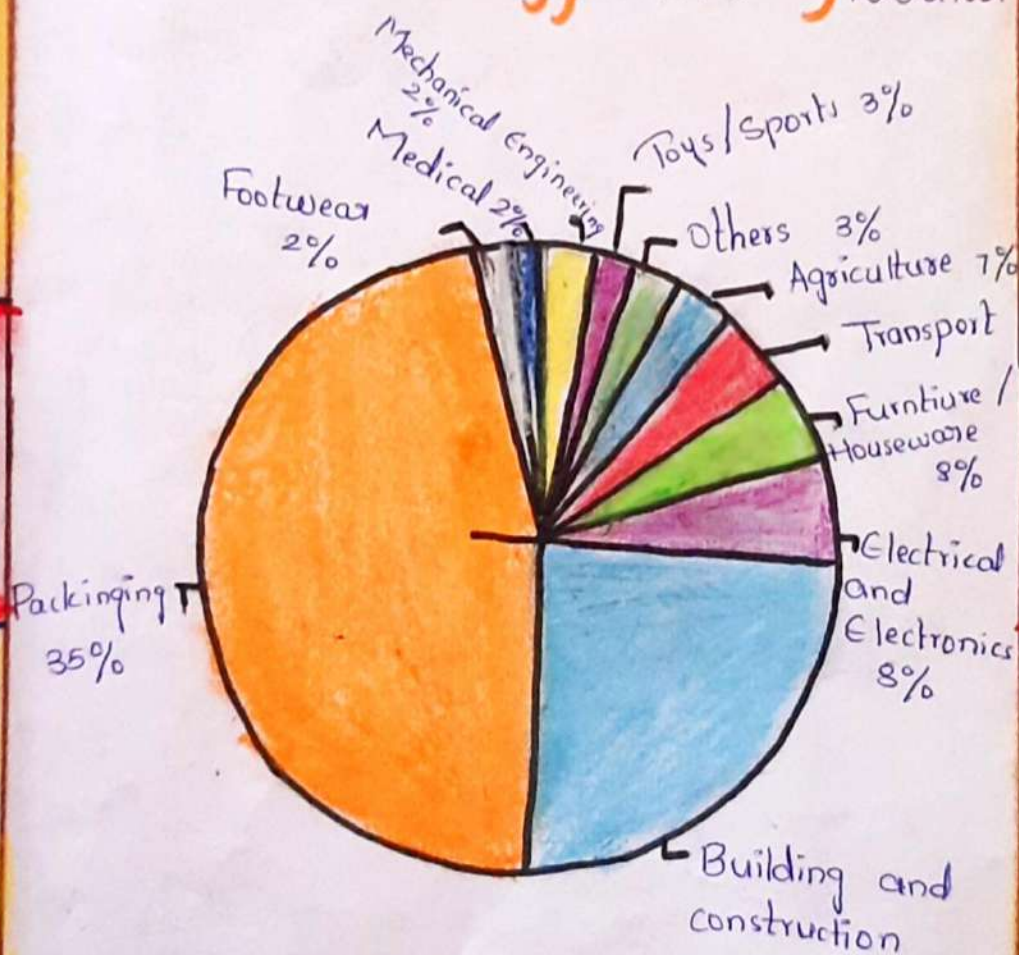 Mechanical Engineering
2%
Medical 2%
Footwear
2%
Toys/Sports 3%
Others 3%
Agriculture 7%
Transport
Furntiure /
Houseware
8%
Electrical
and
Electronics
8%
Packinging
35%
Building and
construction